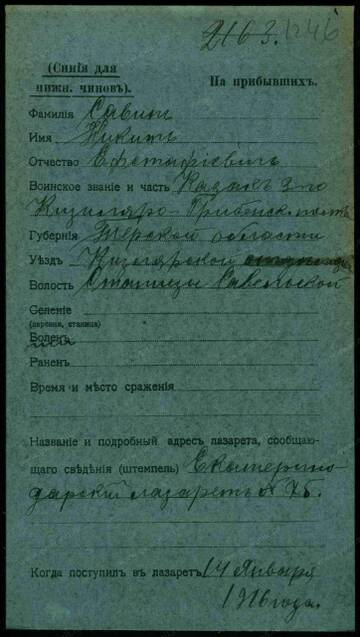 2163. 1246
(Синія для
нижн. чиновъ).
На прибывшихъ.
Фамилія Савин
Имя Никита
Отчество Евстафіевичъ
Воинское званіе и часть Казакъ 3-го
Кизляро-Гребенск. полка
Губернія Терской области
Уѣздъ Кизлярской
Волость Станицы Савельевской
Селеніе
(деревня, станица)
Боленъ
Раненъ
Время и мѣсто сраженія
Названіе и подробный адресъ лазарета, сообщаю-
щаго свѣдѣнія (штемпель) Екатерино-
дарскій лазаретъ № 7б.
Когда поступилъ въ лазаретъ 14 Января
1916 года.